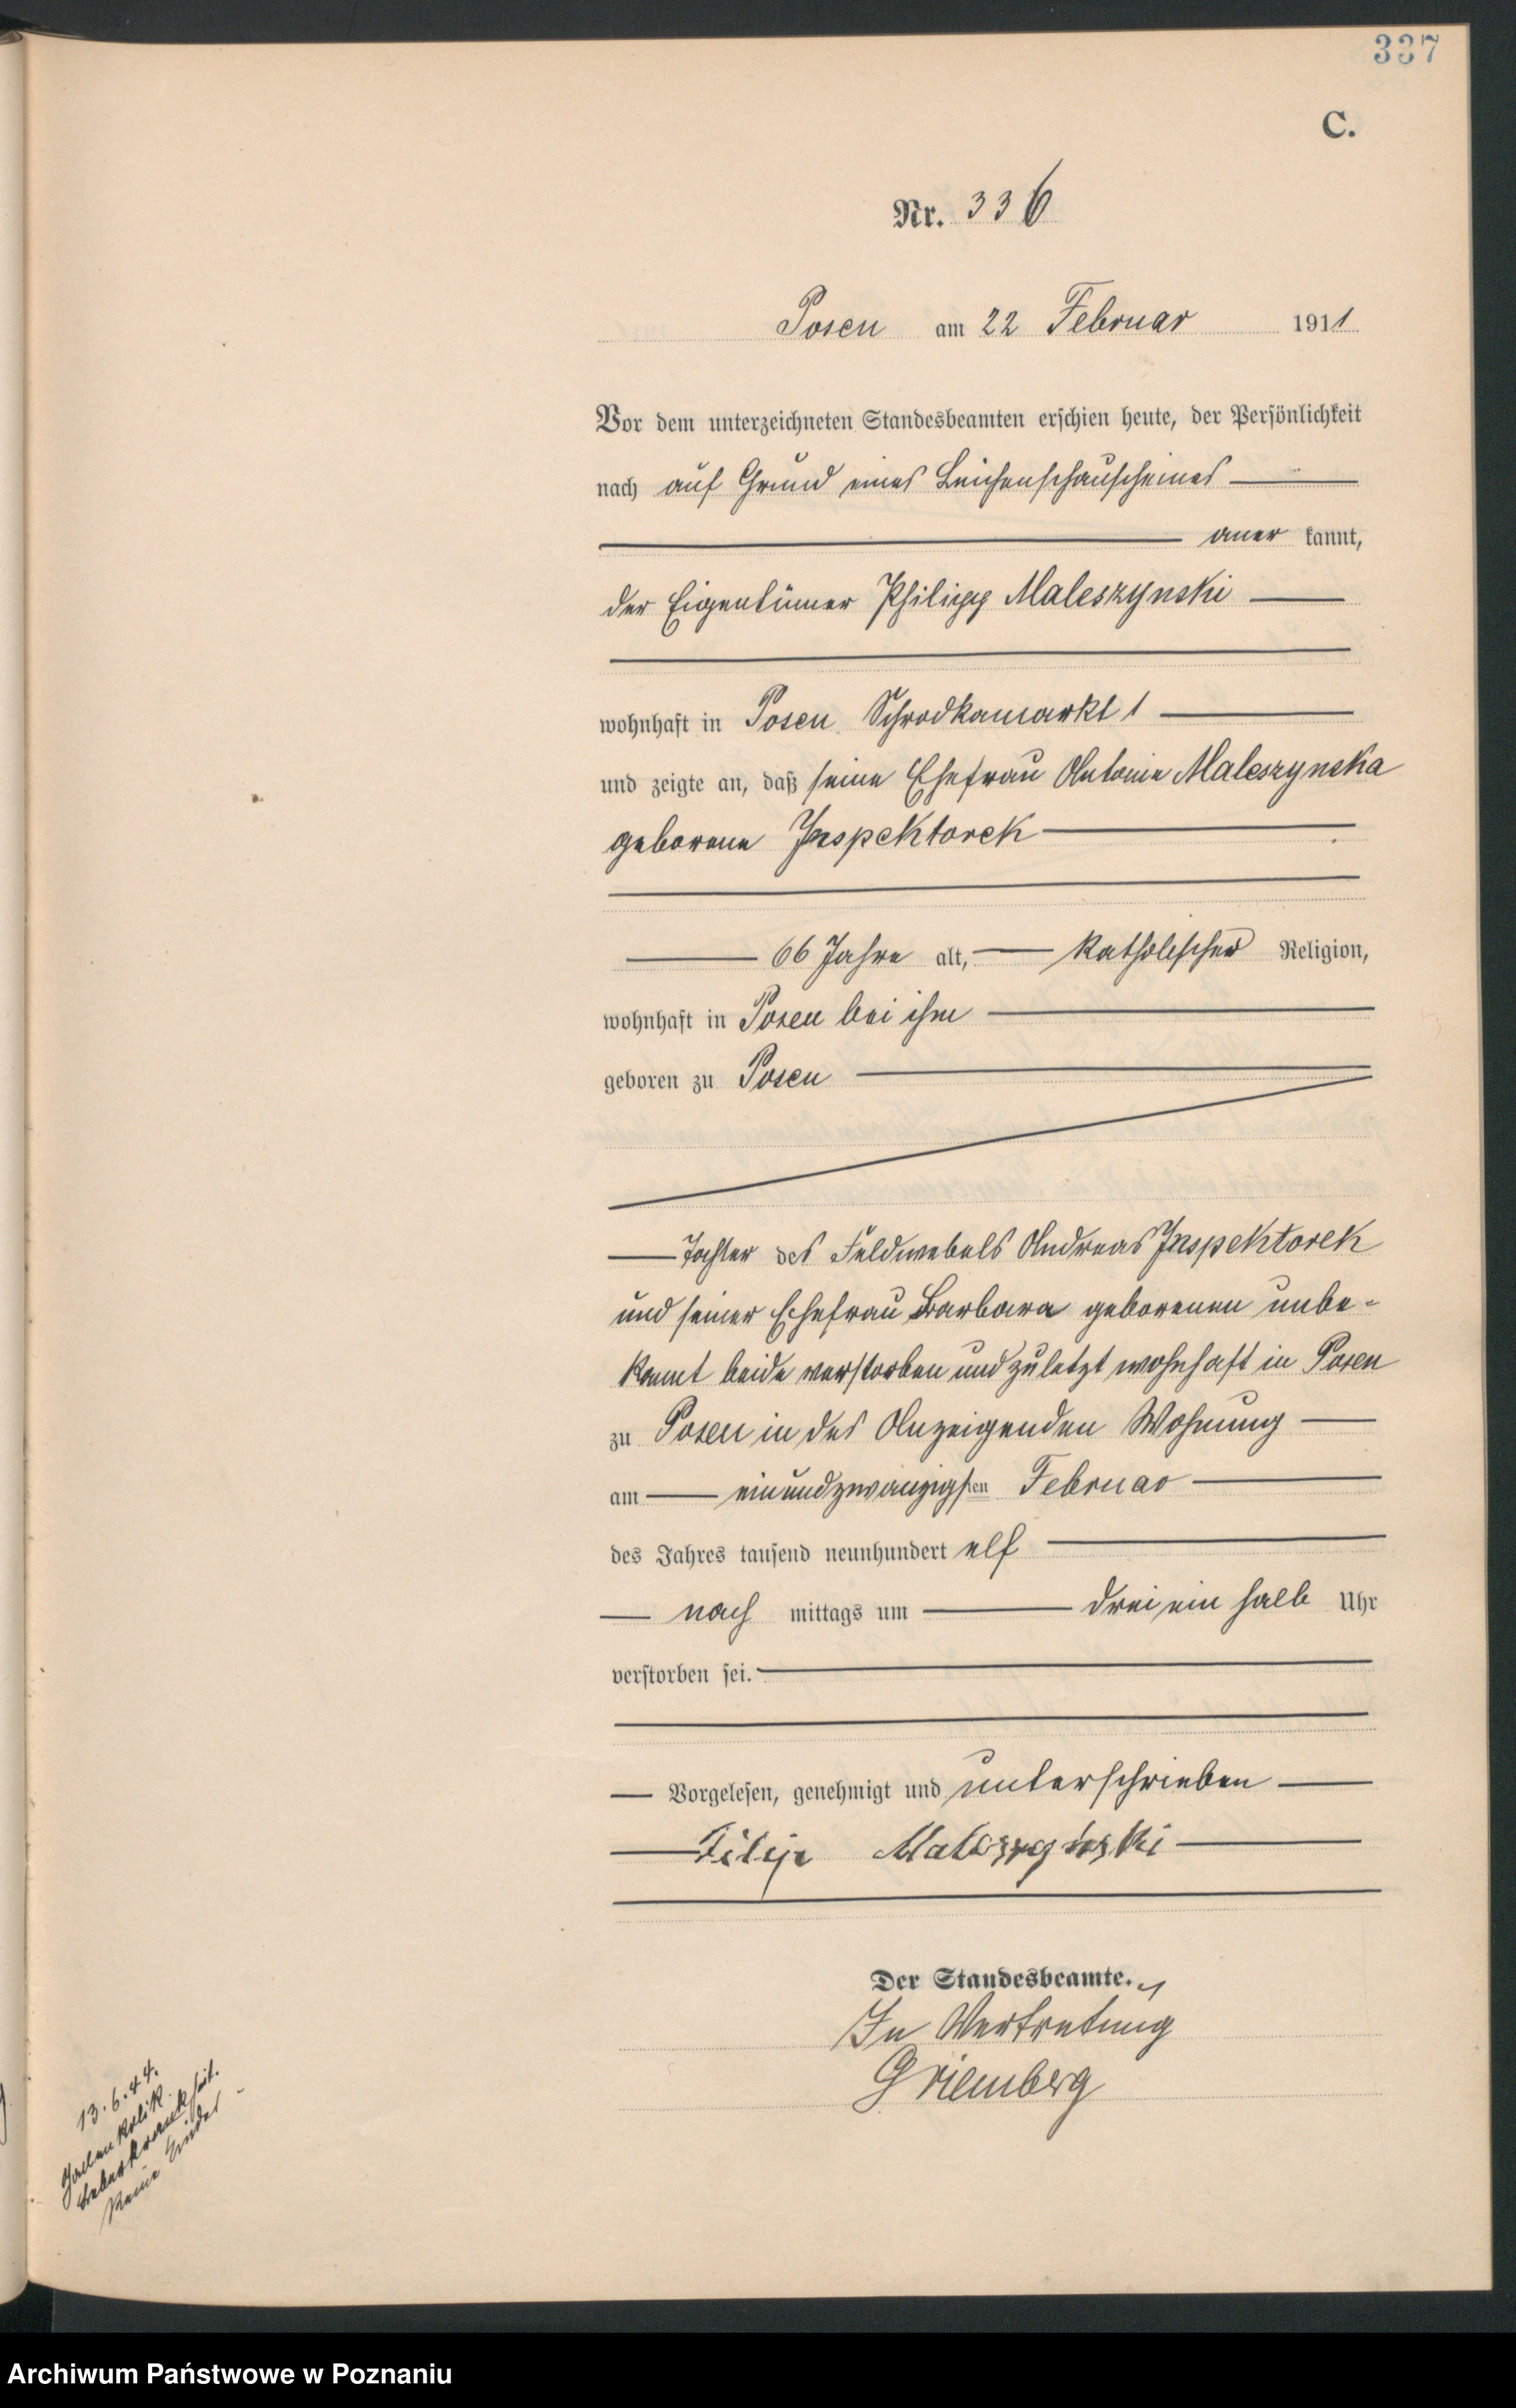 337
C.
Nr. 336
Posen am 22 Februar 1911
Vor dem unterzeichneten Standesbeamten erschien heute, der Persönlichkeit
nach auf Grund eines Leichenschauscheines
aner kannt,
der Eigentümer Philipp Maleszynski
wohnhaft in Posen Schrodkamarkt 1
und zeigte an, daß seine Ehefrau Antonie Maleszynska
geborene Inspektorek
66 Jahre alt, katholischer Religion,
wohnhaft in Posen bei ihm
geboren zu Posen
Tochter des Feldwebels Andreas Inspektorek
und seiner Ehefrau Barbara geborenen unbe-
kannt beide verstorben und zuletzt wohnhaft in Posen
zu Posen in des Anzeigenden Wohnung
am einundzwanzigsten Februar
des Jahres tausend neunhundert elf
nach mittags um drei ein halb Uhr
verstorben sei.
Vorgelesen, genehmigt und unterschrieben
Filip Maleszyński
Der Standesbeamte.
In Vertretung
Griemberg
13.6.44.
Gallenkolik
Leberkrankheit.
keine Kinder
Archiwum Państwowe w Poznaniu